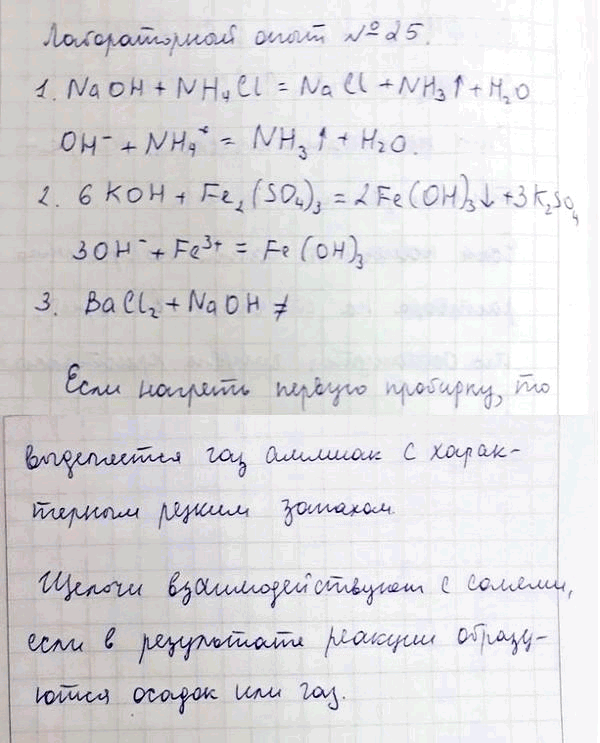 Лабораторный опыт №25.
1. NaOH + NH₄Cl = NaCl + NH₃↑ + H₂O
OH⁻ + NH₄⁺ = NH₃↑ + H₂O.
2. 6 KOH + Fe₂(SO₄)₃ = 2Fe(OH)₃↓ + 3K₂SO₄
3OH⁻ + Fe³⁺ = Fe(OH)₃
3. BaCl₂ + NaOH ≠
Если нагреть первую пробирку, то
выделяется газ аммиак с харак-
терным резким запахом.
Щелочи взаимодействуют с солями,
если в результате реакции образу-
ются осадок или газ.